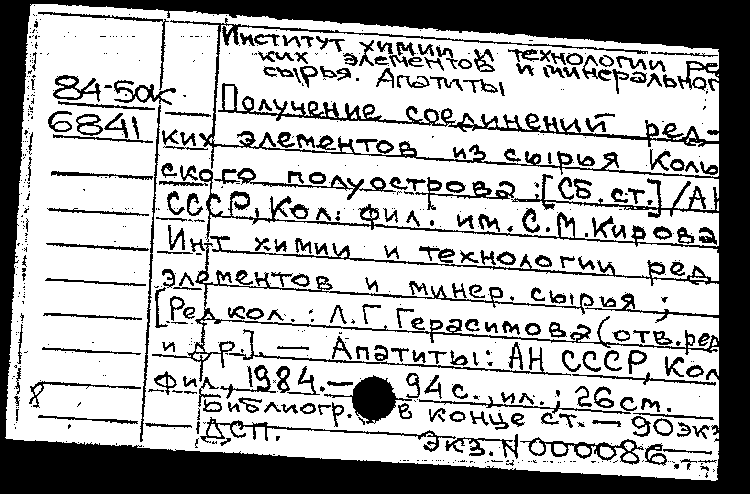 Институт химии и технологии ре
ких элементов и минерально
сырья. Апатиты
84-50к Получение соединений ред-
6841 ких элементов из сырья Коль
ского полуострова :[Сб.ст.] /АН
СССР, Кол. фил. им. С.М.Кирова
Ин-т химии и технологии ред.
элементов и минер. сырья ;
[Ред.кол.: Л.Г.Герасимова (отв.ред
и др.]. — Апатиты: АН СССР, Кол
фил., 1984.— 94 с., ил.; 26см.
8 Библиогр. в конце ст. — 90экз
ДСП. Экз.N000086.